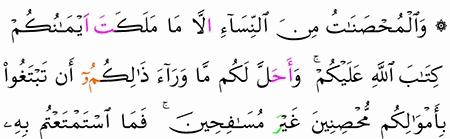 ۞ وَالْمُحْصَنَاتُ مِنَ النِّسَآءِ الَّا مَا مَلَكَتَ اَيْمَانُكُمْ
كِتَابَ اللَّهِ عَلَيْكُمْ ۚ وَأَحَلَّ لَكُم مَّا وَرَآءَ ذَالِكُمُۥٓ أَن تَبْتَغُواْ
بِأَمْوَالِكُم مُّحْصِنِينَ غَيْرَ مُسَافِحِينَ ۚ فَمَا اَسْتَمْتَعْتُم بِهِۦ